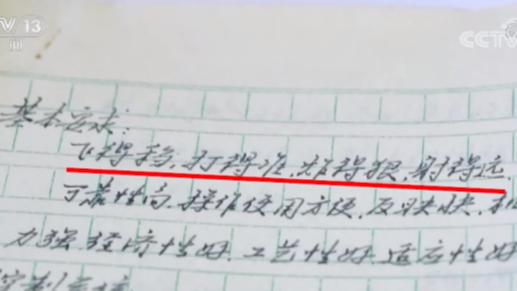 TV 13
CCTV
基本要求:
飞得稳、打得准、炸得狠、射得远,
可靠性高、操作使用方便、反映快、
力强、经济性好、工艺性好、适应性好
控制系统